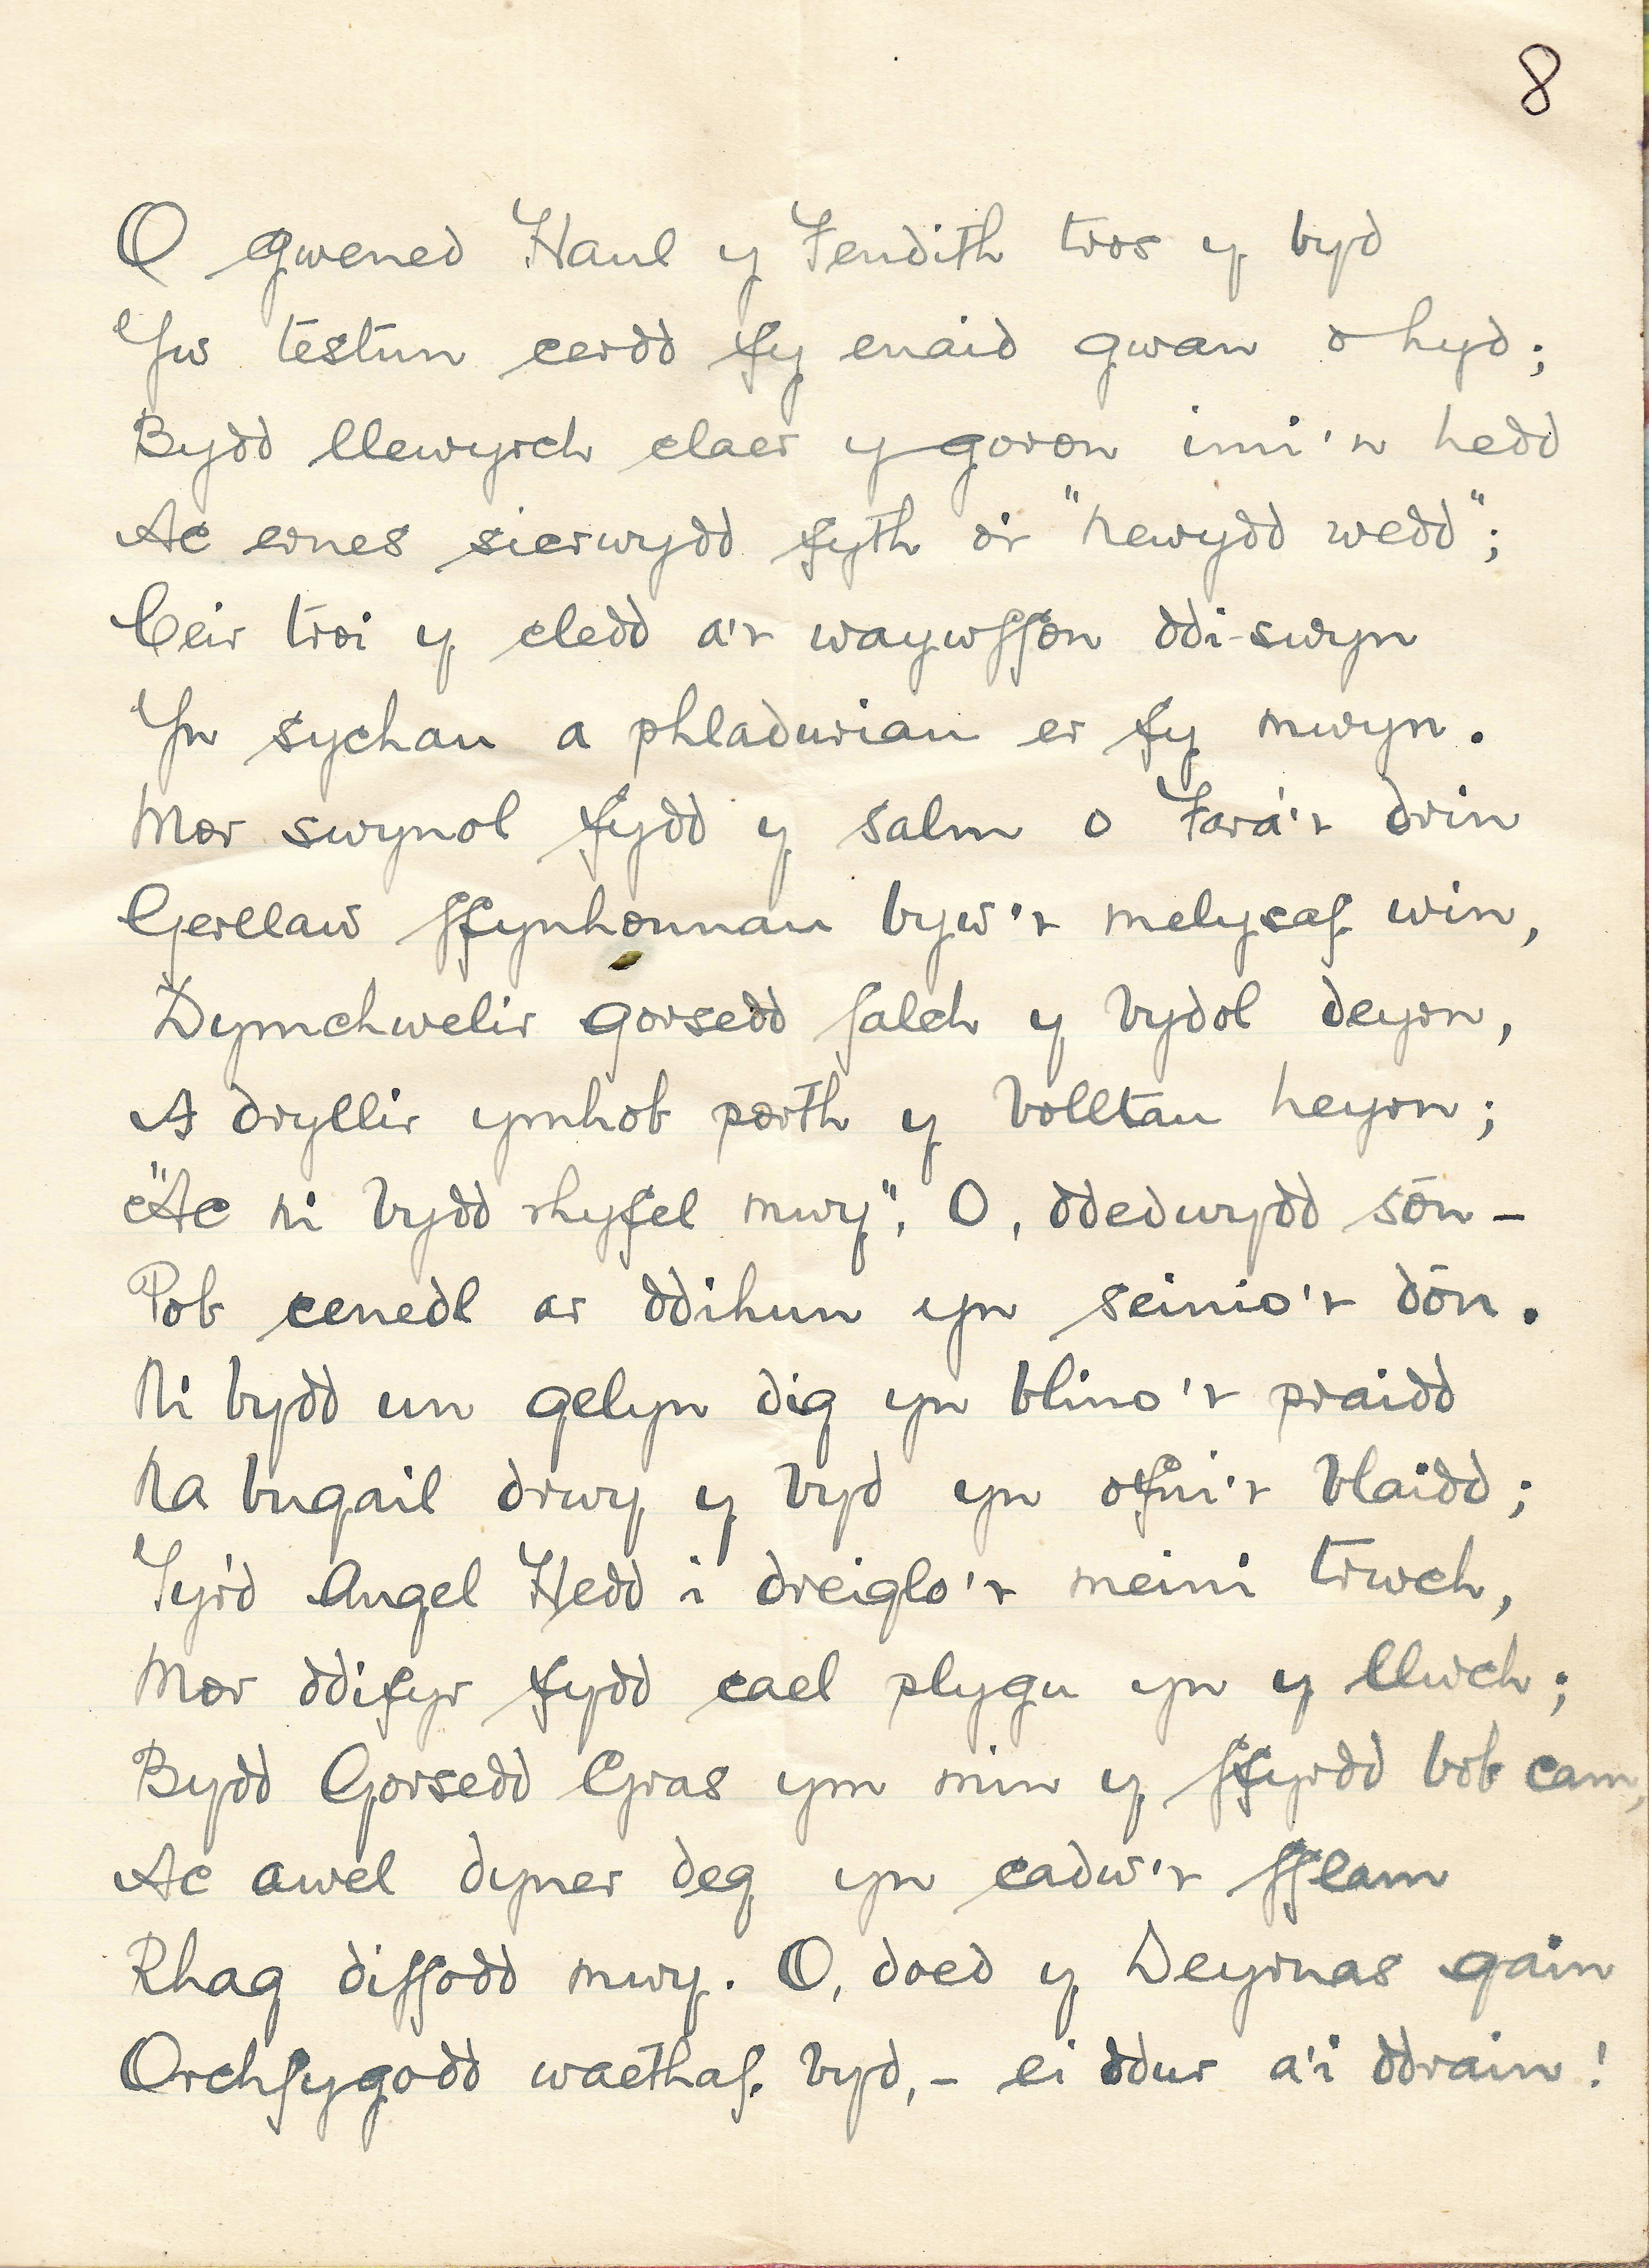 8
O gwened Haul y Fendith tros y byd
Yw testun cerdd fy enaid gwan o hyd;
Bydd llewyrch claer y goron imi'n hedd
Ac ernes sicrwydd fyth o'r "newydd wedd";
Ceir troi y cledd a'r waywffon ddi-swyn
Yn sychau a phladuriau er fy mwyn.
Mor swynol fydd y salm o Fara'r drin
Gerllaw ffynhonnau byw'r melysaf win,
Dymchwelir gorsedd falch y bydol deyrn,
A dryllir ymhob porth y bolltau heyrn;
"Ac ni bydd rhyfel mwy", O, ddedwydd sôn –
Pob cenedl ar ddihun yn seinio'r dôn.
Ni bydd un gelyn dig yn blino'r praidd
Na bugail drwy y byd yn ofni'r blaidd;
Tyr'd Angel Hedd i dreiglo'r meini trwch,
Mor ddifyr fydd cael plygu yn y llwch;
Bydd Gorsedd Gras ym min y ffyrdd bob cam,
Ac awel dyner deg yn cadw'r fflam
Rhag diffodd mwy. O, doed y Deyrnas gain
Orchfygodd waethaf byd, – ei ddur a'i ddrain!